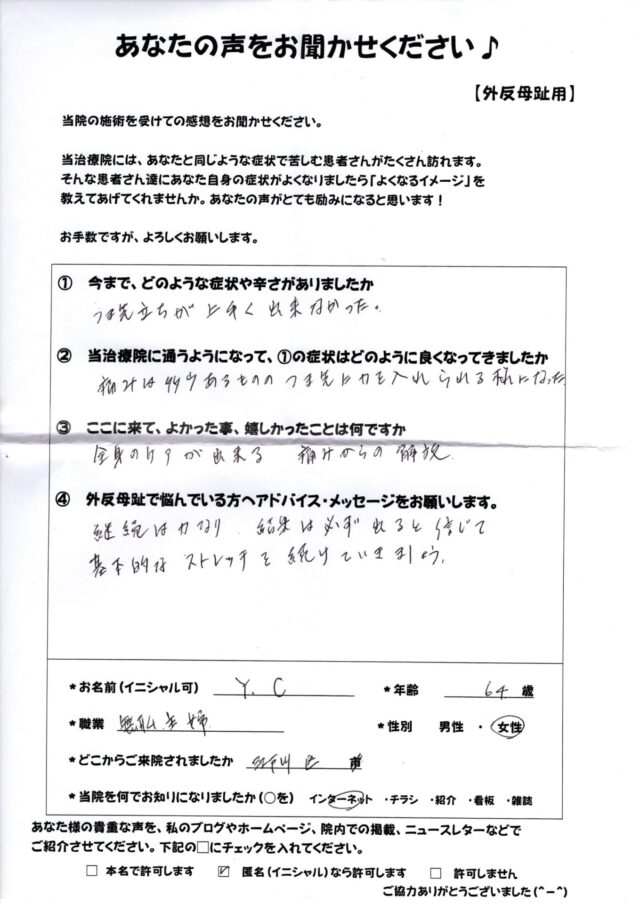 あなたの声をお聞かせください♪
【外反母趾用】
当院の施術を受けての感想をお聞かせください。
当治療院には、あなたと同じような症状で苦しむ患者さんがたくさん訪れます。
そんな患者さん達にあなた自身の症状がよくなりましたら「よくなるイメージ」を
教えてあげてくれませんか。あなたの声がとても励みになると思います！
お手数ですが、よろしくお願いします。
① 今まで、どのような症状や辛さがありましたか
つま先立ちが上手く出来なかった。
② 当治療院に通うようになって、①の症状はどのように良くなってきましたか
痛みは多少あるもののつま先に力を入れられる様になった
③ ここに来て、よかった事、嬉しかったことは何ですか
全身のケアが出来る 痛みからの解放
④ 外反母趾で悩んでいる方へアドバイス・メッセージをお願いします。
継続は力なり 結果は必ず出ると信じて
基本的なストレッチを続けていきましょう。
*お名前(イニシャル可) Y. C *年齢 64 歳
*職業 *性別 男性 ・ 女性
*どこからご来院されましたか 区
*当院を何でお知りになりましたか(○を) インターネット ・チラシ ・紹介 ・看板 ・雑誌
あなた様の貴重な声を、私のブログやホームページ、院内での掲載、ニュースレターなどで
ご紹介させてください。下記の□にチェックを入れてください。
□ 本名で許可します ☑ 匿名(イニシャル)なら許可します □ 許可しません
ご協力ありがとうございました(^-^)